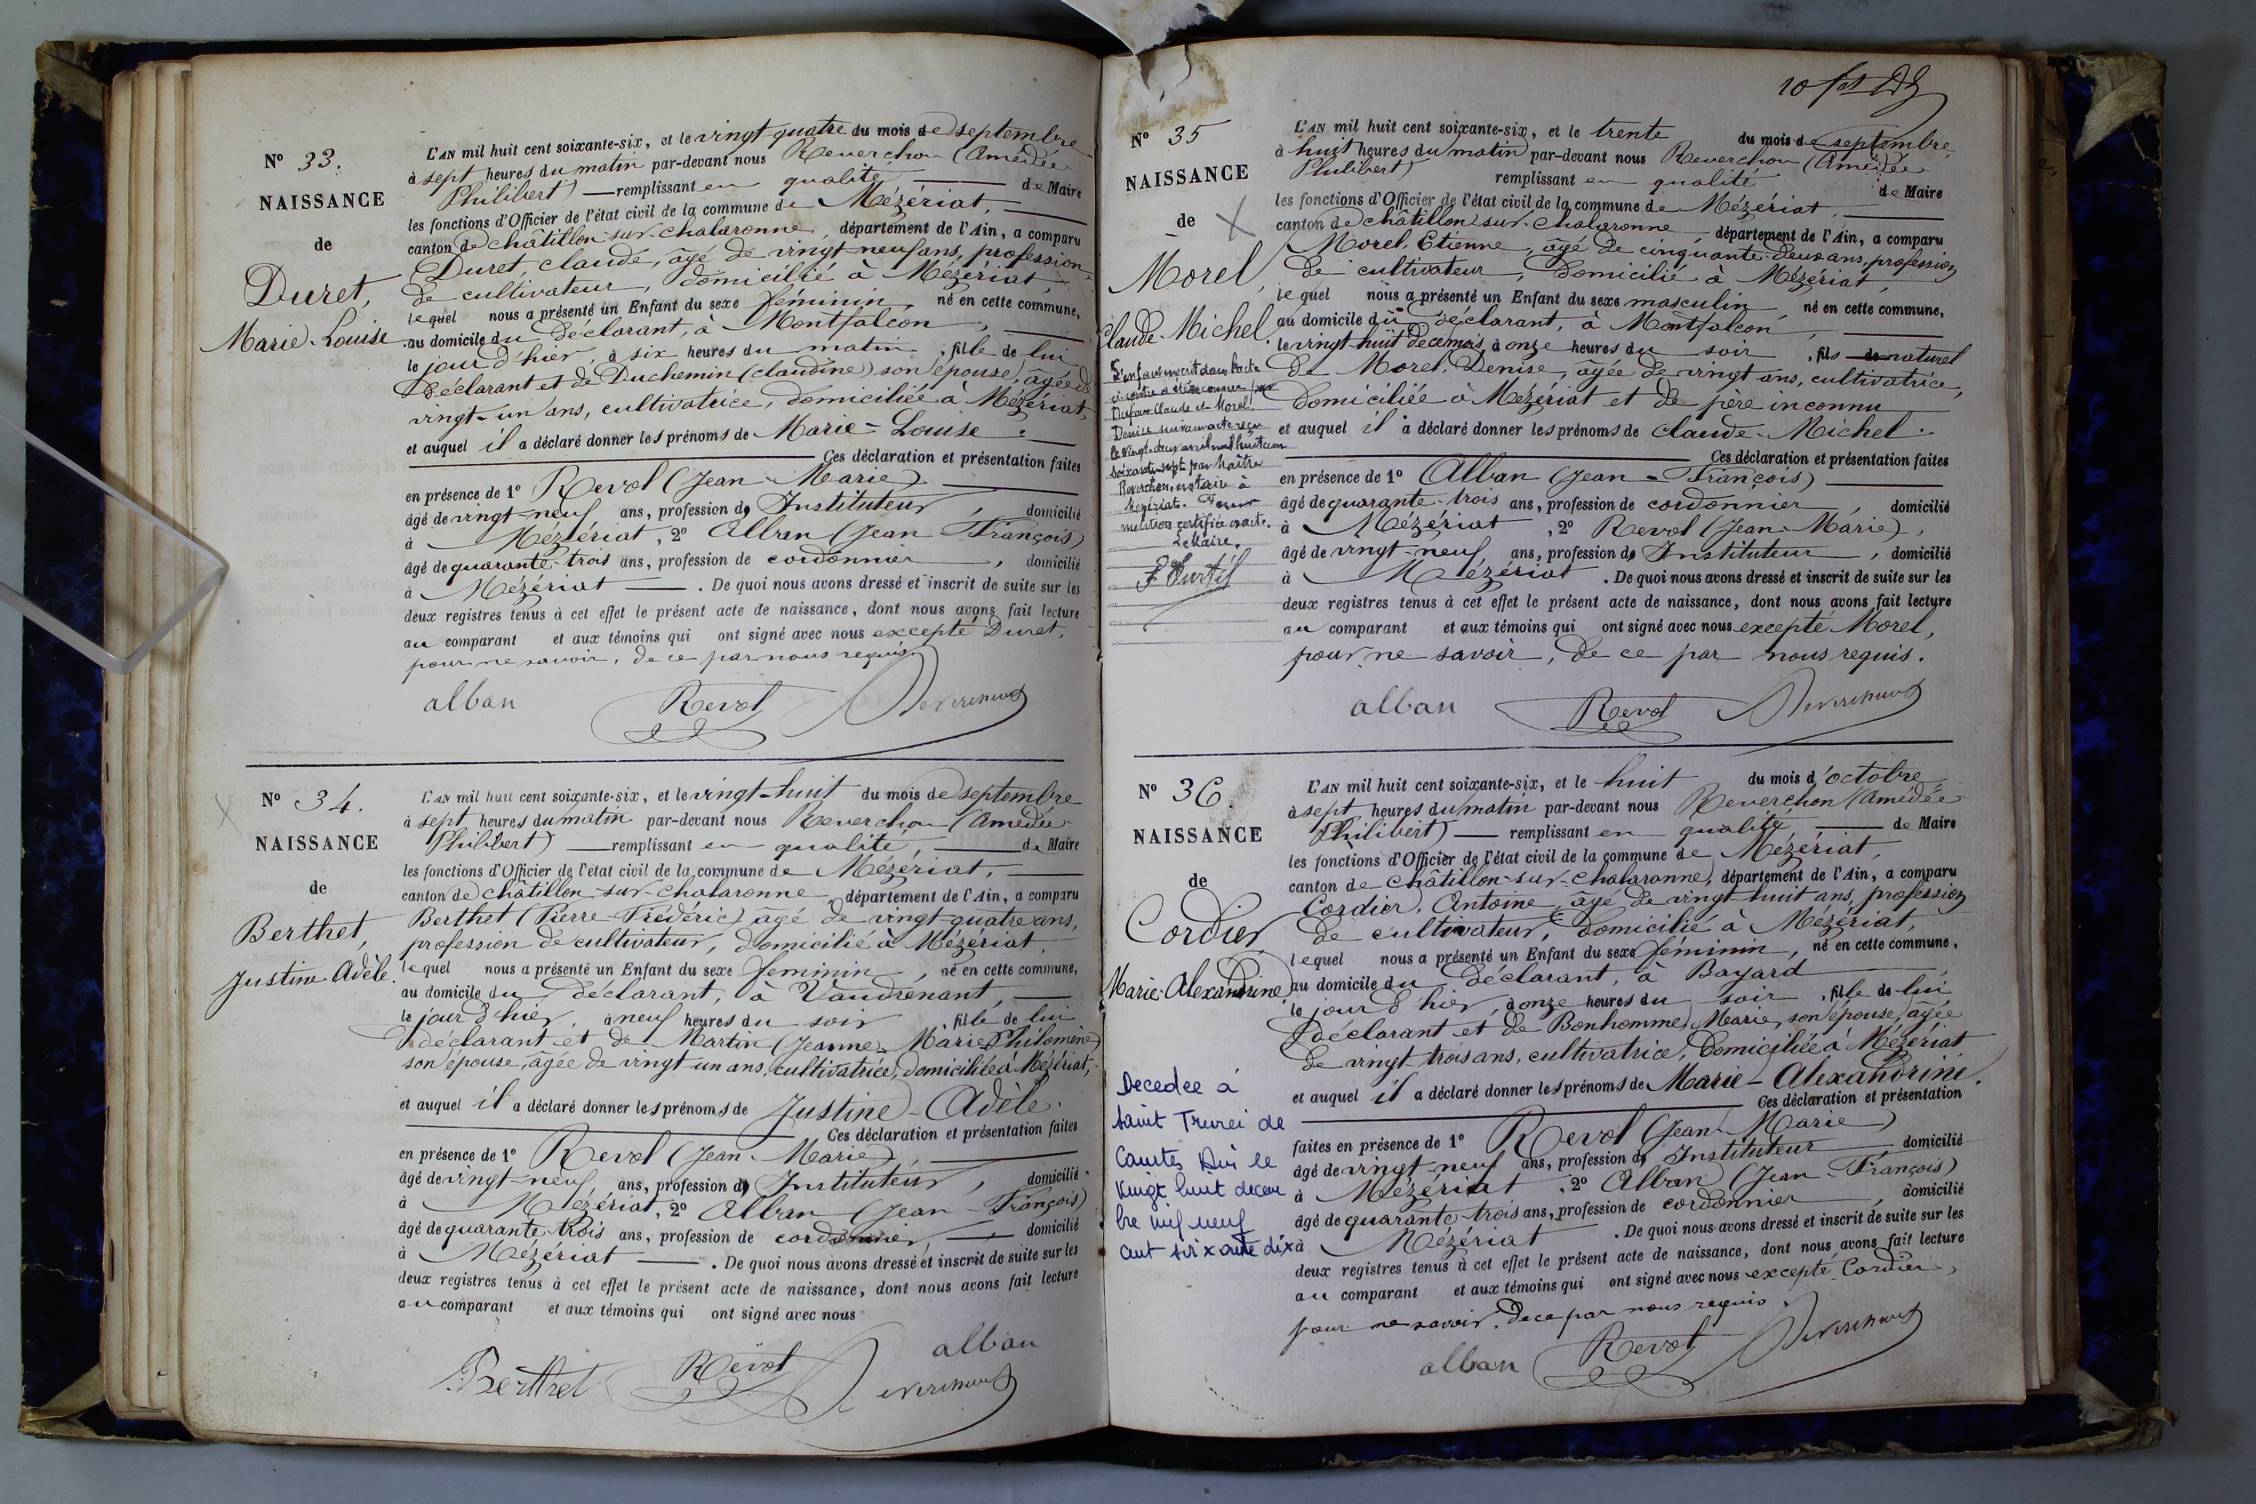 N° 33.
NAISSANCE
de
Duret,
Marie-Louise
L'AN mil huit cent soixante-six, et le vingt quatre du mois de septembre
à sept heures du matin par-devant nous Reverchon (Amédée
Philibert) remplissant en qualité de Maire
les fonctions d'Officier de l'état civil de la commune de Mézériat,
canton de châtillon-sur-chalaronne, département de l'Ain, a comparu
Duret, claude, âgé de vingt-neuf ans, profession
de cultivateur, domicilié à Mézériat,
lequel nous a présenté un Enfant du sexe féminin, né en cette commune,
au domicile du déclarant, à Montfalcon,
le jour d'hier, à six heures du matin, fille de lui
déclarant et de Duchemin (claudine) son épouse, âgée de
vingt-un ans, cultivatrice, domiciliée à Mézériat,
et auquel il a déclaré donner les prénoms de Marie-Louise.
Ces déclaration et présentation faites
en présence de 1° Revol (Jean-Marie)
âgé de vingt-neuf ans, profession d' Instituteur, domicilié
à Mézériat, 2° Alban (Jean-François)
âgé de quarante-trois ans, profession de cordonnier, domicilié
à Mézériat. De quoi nous avons dressé et inscrit de suite sur les
deux registres tenus à cet effet le présent acte de naissance, dont nous avons fait lecture
au comparant et aux témoins qui ont signé avec nous excepté Duret,
pour ne savoir, de ce par nous requis.
alban Revol Reverchon
N° 34.
NAISSANCE
de
Berthet,
Justine-Adèle.
L'AN mil huit cent soixante-six, et le vingt-huit du mois de septembre
à sept heures du matin par-devant nous Reverchon (Amédée
Philibert) remplissant en qualité de Maire
les fonctions d'Officier de l'état civil de la commune de Mézériat,
canton de châtillon-sur-chalaronne, département de l'Ain, a comparu
Berthet (Pierre-Frédéric) agé de vingt-quatre ans,
profession de cultivateur, domicilié à Mézériat,
lequel nous a présenté un Enfant du sexe féminin, né en cette commune,
au domicile du déclarant, à Vaudrenant,
le jour d'hier, à neuf heures du soir, fille de lui
déclarant et de Martin (Jeanne-Marie-Philomène)
son épouse, âgée de vingt un ans, cultivatrice, domiciliée à Mézériat,
et auquel il a déclaré donner les prénoms de Justine-Adèle.
Ces déclaration et présentation faites
en présence de 1° Revol (Jean-Marie),
âgé de vingt-neuf ans, profession d' Instituteur, domicilié
à Mézériat, 2° Alban (Jean-François)
âgé de quarante-trois ans, profession de cordonnier, domicilié
à Mézériat. De quoi nous avons dressé et inscrit de suite sur les
deux registres tenus à cet effet le présent acte de naissance, dont nous avons fait lecture
au comparant et aux témoins qui ont signé avec nous
alban
Berthet Revol Reverchon
N° 35
NAISSANCE
de
Morel,
Claude-Michel.
L'enfant inscrit dans l'acte
ci-contre a été reconnu par
Dufour Claude et Morel
Denise suivant acte reçu
le vingt-deux avril mil huit cent
soixante-sept par Maître
Reverchon, notaire à
Mézériat. Pour
mention certifiée exacte.
Le Maire,
L'AN mil huit cent soixante-six, et le trente du mois de septembre
à huit heures du matin par-devant nous Reverchon (Amédée
Philibert) remplissant en qualité de Maire
les fonctions d'Officier de l'état civil de la commune de Mézériat,
canton de châtillon-sur-chalaronne département de l'Ain, a comparu
Morel, Etienne, âgé de cinquante-deux ans, profession
de cultivateur, domicilié à Mézériat,
lequel nous a présenté un Enfant du sexe masculin, né en cette commune,
au domicile du déclarant, à Montfalcon,
le vingt-huit de ce mois, à onze heures du soir, fils de naturel
de Morel, Denise, âgée de vingt ans, cultivatrice,
domiciliée à Mézériat et de père inconnu
et auquel il a déclaré donner les prénoms de claude-Michel.
Ces déclaration et présentation faites
en présence de 1° Alban (Jean-François)
âgé de quarante-trois ans, profession de cordonnier, domicilié
à Mézériat, 2° Revol (Jean-Marie),
âgé de vingt-neuf ans, profession d' Instituteur, domicilié
à Mézériat. De quoi nous avons dressé et inscrit de suite sur les
deux registres tenus à cet effet le présent acte de naissance, dont nous avons fait lecture
au comparant et aux témoins qui ont signé avec nous excepté Morel,
pour ne savoir, de ce par nous requis.
alban Revol Reverchon
N° 36.
NAISSANCE
de
Cordier,
Marie-Alexandrine
Decedee à
saint Trivié de
Courtes Din le
vingt huit decem
bre mil neuf
cent soixante dix
L'AN mil huit cent soixante-six, et le huit du mois d'octobre
à sept heures du matin par-devant nous Reverchon (Amédée
Philibert) remplissant en qualité de Maire
les fonctions d'Officier de l'état civil de la commune de Mézériat,
canton de châtillon-sur-chalaronne, département de l'Ain, a comparu
Cordier, Antoine, âgé de vingt-huit ans, profession
de cultivateur, domicilié à Mézériat,
lequel nous a présenté un Enfant du sexe féminin, né en cette commune,
au domicile du déclarant, à Bayard
le jour d'hier, à onze heures du soir, fille de lui
déclarant et de Bonhomme, Marie, son épouse, âgée
de vingt-trois ans, cultivatrice, domiciliée à Mézériat
et auquel il a déclaré donner les prénoms de Marie-Alexandrine.
Ces déclaration et présentation
faites en présence de 1° Revol (Jean-Marie)
âgé de vingt-neuf ans, profession d' Instituteur domicilié
à Mézériat, 2° Alban (Jean-François)
âgé de quarante-trois ans, profession de cordonnier, domicilié
à Mézériat. De quoi nous avons dressé et inscrit de suite sur les
deux registres tenus à cet effet le présent acte de naissance, dont nous avons fait lecture
au comparant et aux témoins qui ont signé avec nous excepté Cordier,
pour ne savoir, de ce par nous requis.
alban Revol Reverchon